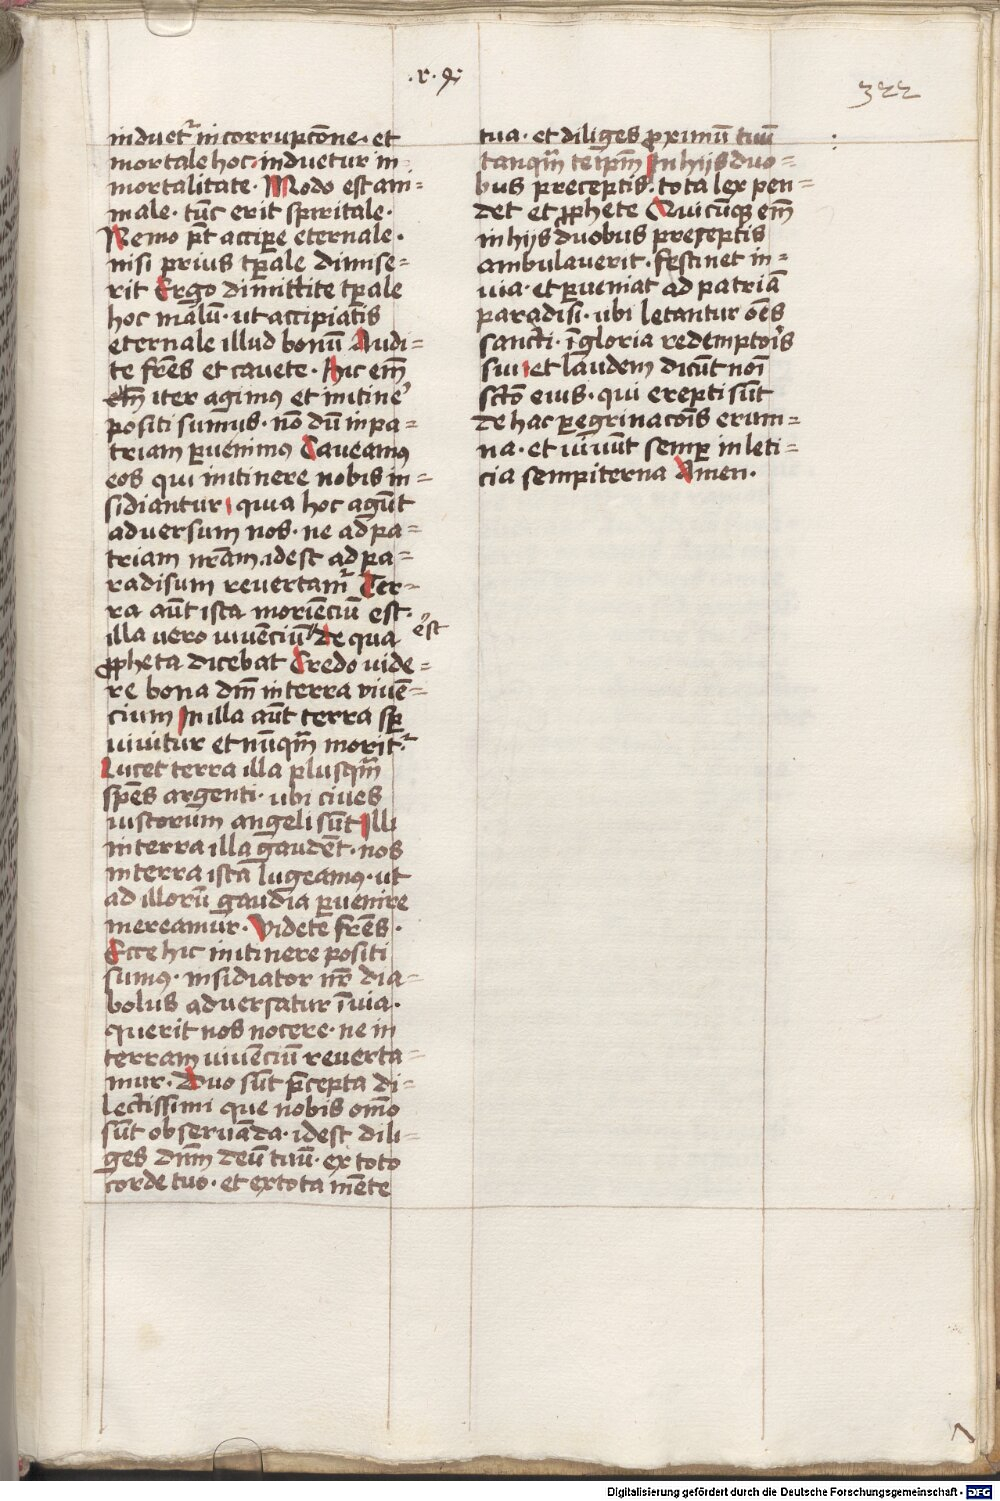 .r. 9.
322
induet᷑ incorrupcōne. et
mortale hoc induetur in
mortalitate. Modo est ani=
male. tūc erit spiritale.
Nemo pt̄ accipe eternale.
nisi prius tp̄ale dimise=
rit Ergo dimittite tp̄ale
hoc malū. ut accipiatis
eternale illud bonū Audi=
te fr̄es et cavete. Hic em̄
iter agimus et initineᷣ
positi sumus. nō dū in pa=
triam pvenimus Caveamus
eos qui initinere nobis in=
sidiantur quia hoc agūt
adversum nos. ne ad pa=
triam nr̄am idest ad pa=
radisum revertam᷑ Ter=
ra aūt ista moriēciū est.
illa vero vivēciū est De qua
ꝓpheta dicebat Credo vide=
re bona dn̄i in terra vivē=
cium In illa aūt terra sp̄
vivitur et nūqm̄ morit᷑
Lucet terra illa plusqm̄
spēs argenti. ubi cives
iustorum angeli sūt Illi
in terra illa gaudēt. nos
in terra ista lugeamus. ut
ad illorū gaudia pvenire
mereamur. Videte fr̄es.
Ecce hic initinere positi
sumus. insidiator nr̄ dia=
bolus adversatur ī via.
querit nos nocere. ne in
terram vivēciū reverta=
mur. Duo sūt p̄cepta di=
lectissimi que nobis om̄o
sūt observāda. idest dili=
ges dn̄m deū tuū. ex toto
corde tuo. et ex tota mēte
tua. et diliges ꝓximū tuū
tanqm̄ te ip̄m In hijs duo=
bus preceptis. tota lex pen=
det et ꝓphete Quicūqꝫ em̄
in hijs duobus preceptis
ambulaverit. festinet in=
via. et pveniat ad patriā
paradisi. ubi letantur oēs
sancti. ī gloria redemptoris
sui et laudem dicūt noī
scto eius. qui erepti sūt
de hac pegrinacōis erum=
na. et vivūt semp in leti=
cia sempiterna Amen.
Digitalisierung gefördert durch die Deutsche Forschungsgemeinschaft - DFG